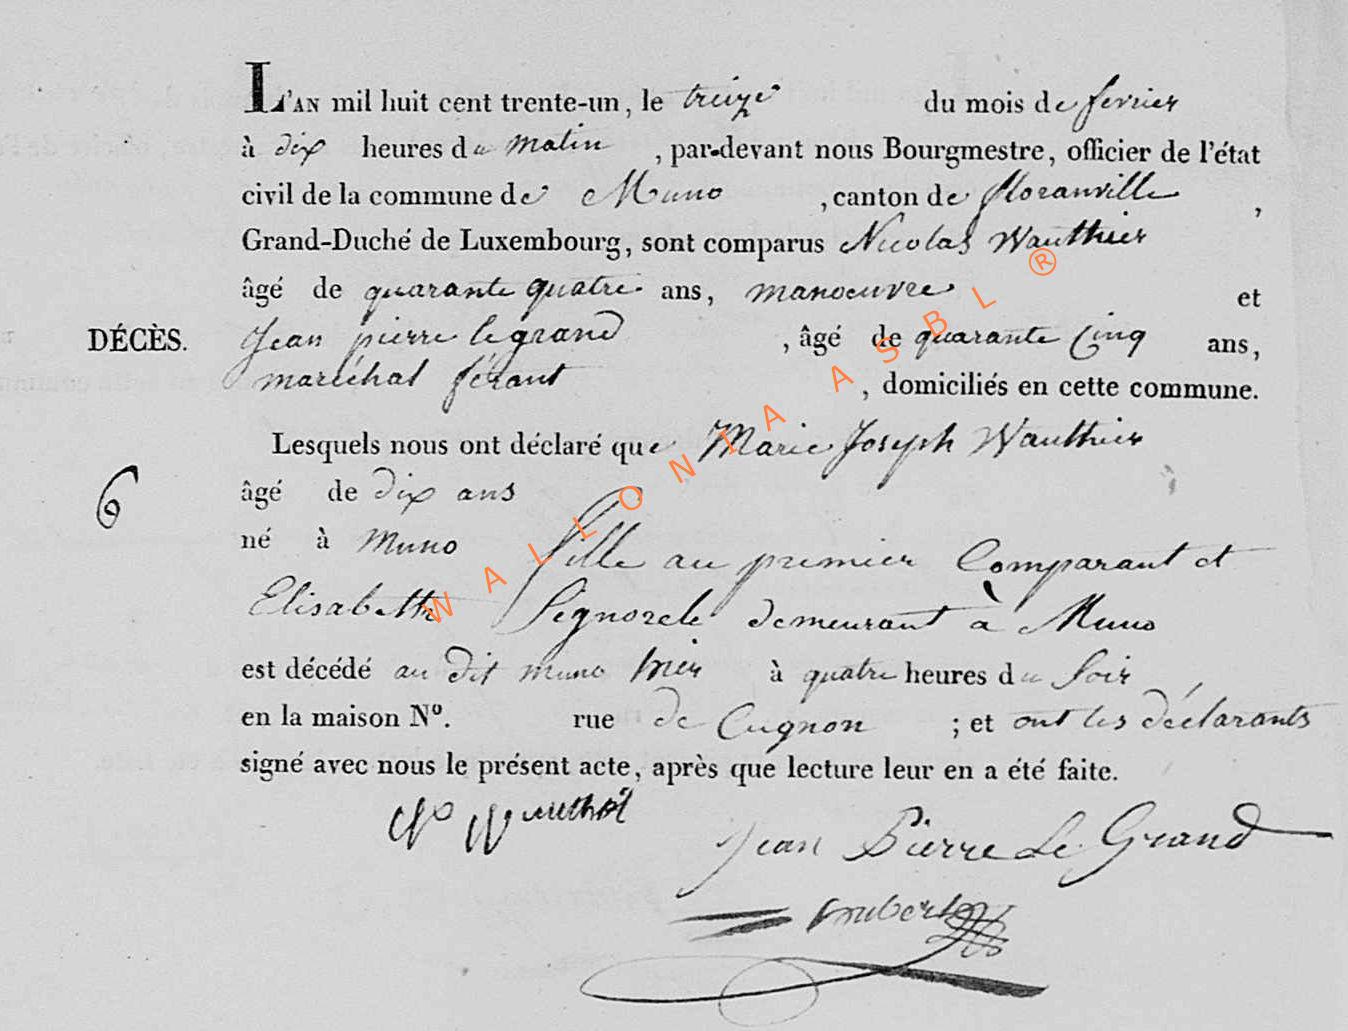 L'AN mil huit cent trente-un, le treize du mois de fevrier
à dix heures du matin, par-devant nous Bourgmestre, officier de l'état
civil de la commune de Muno, canton de floranville,
Grand-Duché de Luxembourg, sont comparus Nicolas Wauthier
âgé de quarante quatre ans, manoeuvre et
DÉCÈS. Jean pierre legrand, âgé de quarante cinq ans,
maréchal férant, domiciliés en cette commune.
Lesquels nous ont déclaré que Marie Joseph Wauthier
6 âgé de dix ans
né à Muno fille au premier Comparant et
Elisabeth demeurant à Muno
est décédé au dit muno hier à quatre heures du soir
en la maison N°. rue de Cugnon; et ont les déclarants
signé avec nous le présent acte, après que lecture leur en a été faite.
Jean Pierre Le Grand
WALLONIA ASBL ®